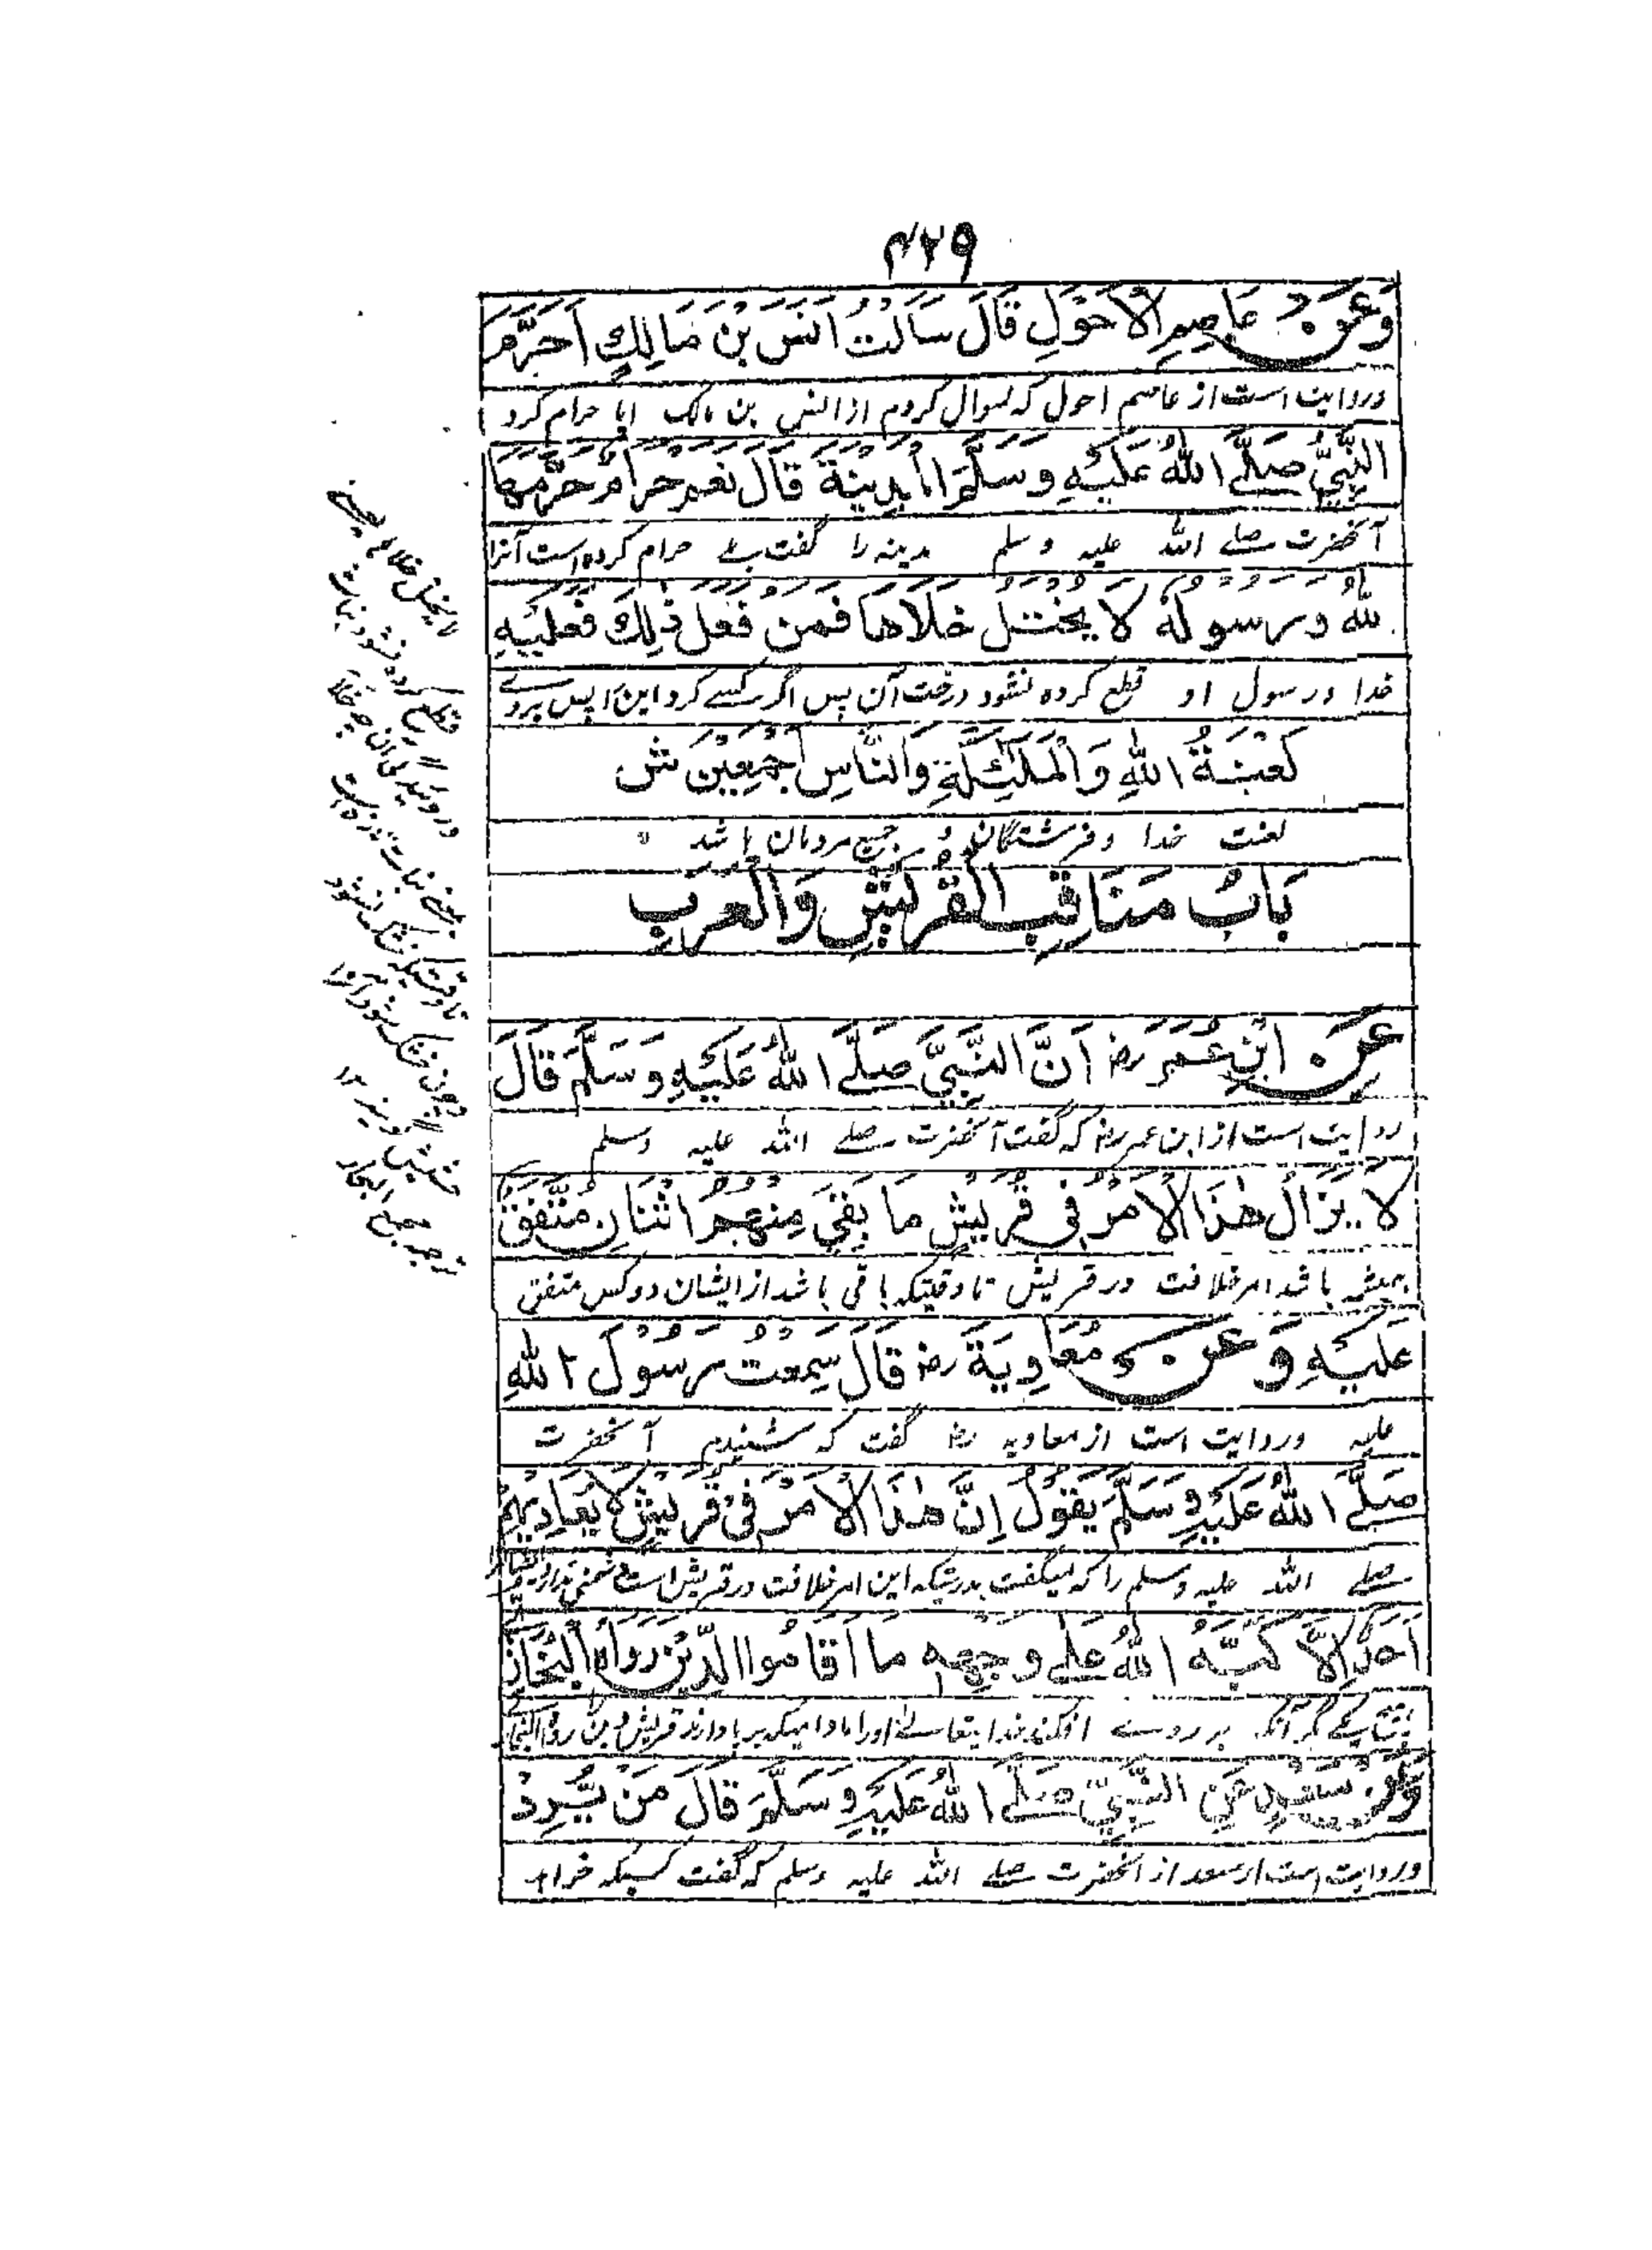 ۴۲۹
وَعَنْ عَاصِمِ الْاَحْوَلِ قَالَ سَاَلْتُ اَنَسَ بْنَ مَالِكٍ اَحَرَّمَ
وروایت است از عاصم احول که سوال کردم از انس بن مالک ایا حرام کرد
النَّبِيُّ صَلَّے اللهُ عَلَيْهِ وَسَلَّمَ الْمَدِيْنَةَ قَالَ نَعَمْ حَرَامٌ حَرَّمَهَا
آنحضرت صلے الله علیه وسلم مدینه را گفت بلے حرام کرده است آنرا
اللهُ وَرَسُولُهُ لَا يُخْتَلٰ خَلَاهَا فَمَنْ فَعَلَ ذٰلِكَ فَعَلَيْهِ
خدا ورسول او قطع کرده نشود درخت آن پس اگر کسے کرد این را پس بروے
لَعْنَةُ اللهِ وَالْمَلٰٓئِكَةِ وَالنَّاسِ اَجْمَعِيْنَ ش
لعنت خدا وفرشتگان و جمیع مردمان باشد
بَابُ مَنَاقِبِ الْقُرَيْشِ وَالْعَرَبِ
عَنِ ابْنِ عُمَرَ رض اَنَّ النَّبِيَّ صَلَّے اللهُ عَلَيْهِ وَسَلَّمَ قَالَ
روایت است از ابن عمر رض که گفت آنحضرت صلے الله علیه وسلم
لَا يَزَالُ هٰذَا الْاَمْرُ فِي قُرَيْشٍ مَا بَقِيَ مِنْهُمُ اثْنَانِ مُتَّفَقٌ
همیشه باشد امر خلافت در قریش تا وقتیکه باقی باشد از ایشان دو کس متفق
عَلَيْهِ وَعَنْ مُعَاوِيَةَ رض قَالَ سَمِعْتُ رَسُولَ اللهِ
علیه وروایت است از معاویه رض گفت که شنیدم آنحضرت
صَلَّے اللهُ عَلَيْهِ وَسَلَّمَ يَقُوْلُ اِنَّ هٰذَا الْاَمْرَ فِيْ قُرَيْشٍ لَا يُعَادِيْهِمْ
صلے الله علیه وسلم را که میگفت بدرستیکه این امر خلافت در قریش است دشمنی ندارد
اَحَدٌ اِلَّا كَبَّهُ اللهُ عَلٰے وَجْهِهٖ مَا اَقَامُوا الدِّيْنَ رَوَاهُ الْبُخَارِيُّ
مگر آنکه بر روے افکند خدایتعالے اورا مادامیکه برپا دارند قریش دین رواه البخاری
وَعَنْ سَعْدٍ عَنِ النَّبِيِّ صَلَّے اللهُ عَلَيْهِ وَسَلَّمَ قَالَ مَنْ يُّرِدْ
وروایت است از سعد از آنحضرت صلے الله علیه وسلم که گفت کسیکه خواهد
لا یختلی خلاها یعنے